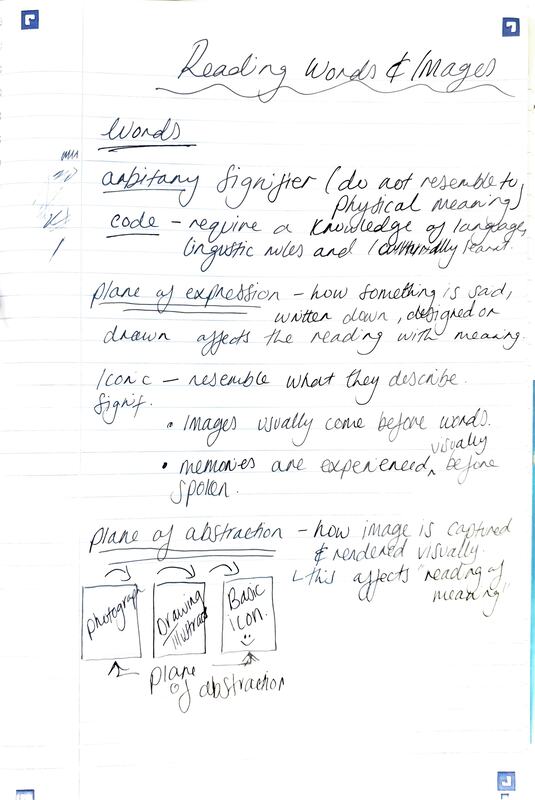 Reading Words & Images
Words
arbitary Signifier (do not resemble to
physical meaning)
code - require a knowledge of language,
lingustic rules and culturally learnt.
plane of expression - how something is said,
written down, designed or
drawn affects the reading with meaning.
Iconic - resemble what they describe.
Signif.
• Images usually come before words.
visually
• memories are experienced ^ before
spoken.
plane of abstraction - how image is captured
& rendered visually.
↳ this affects "reading of
meaning"
Photograph
Drawing
Illustrat
Basic
icon.
plane
of abstraction